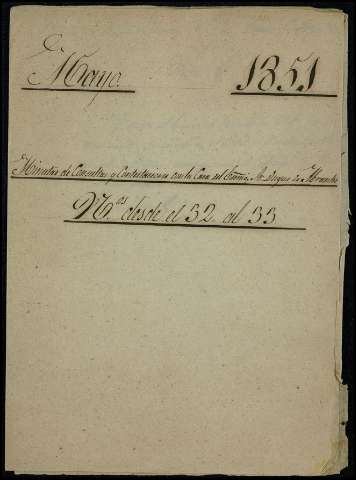 Mayo. 1851
Minutas de Consultas y Contestaciones con la Casa del Excmo. Sr. Duque de
Nos. desde el 32 al 33